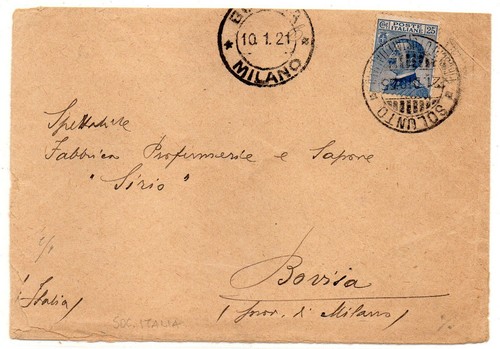 MILANO
10.1.21
POSTE ITALIANE
Ct 25
SOLUNTO
Spettabile
Fabbrica Profumerie e Sapone
"Sirio"
Bovisa
(prov. di Milano)
(Italia)
SOC. ITALIA